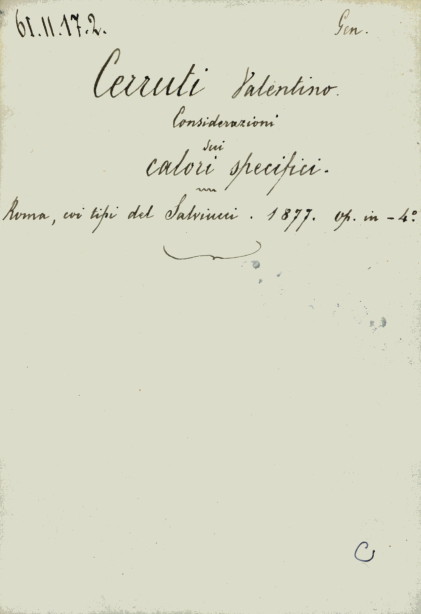 61.11.17.2.
Gen.
Cerruti Valentino.
Considerazioni
sui
calori specifici.
Roma, coi tipi del Salviucci. 1877. op. in-4º
C